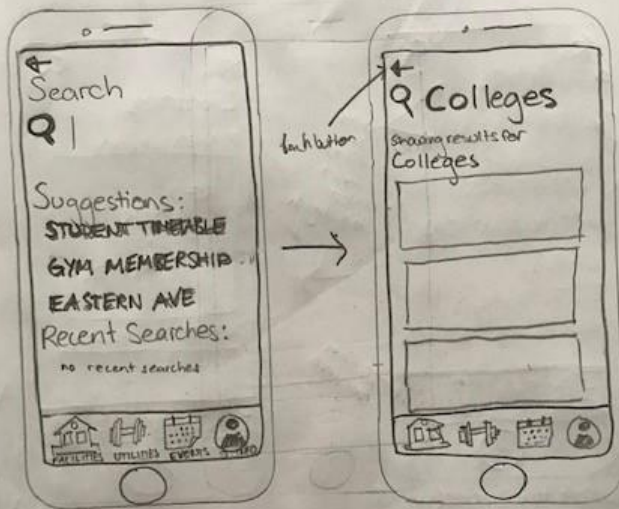 Search
Suggestions:
STUDENT TIMETABLE
GYM MEMBERSHIP
EASTERN AVE
Recent Searches:
no recent searches
FACILITIES UTILITIES EVENTS
back button
Colleges
showing results for
Colleges